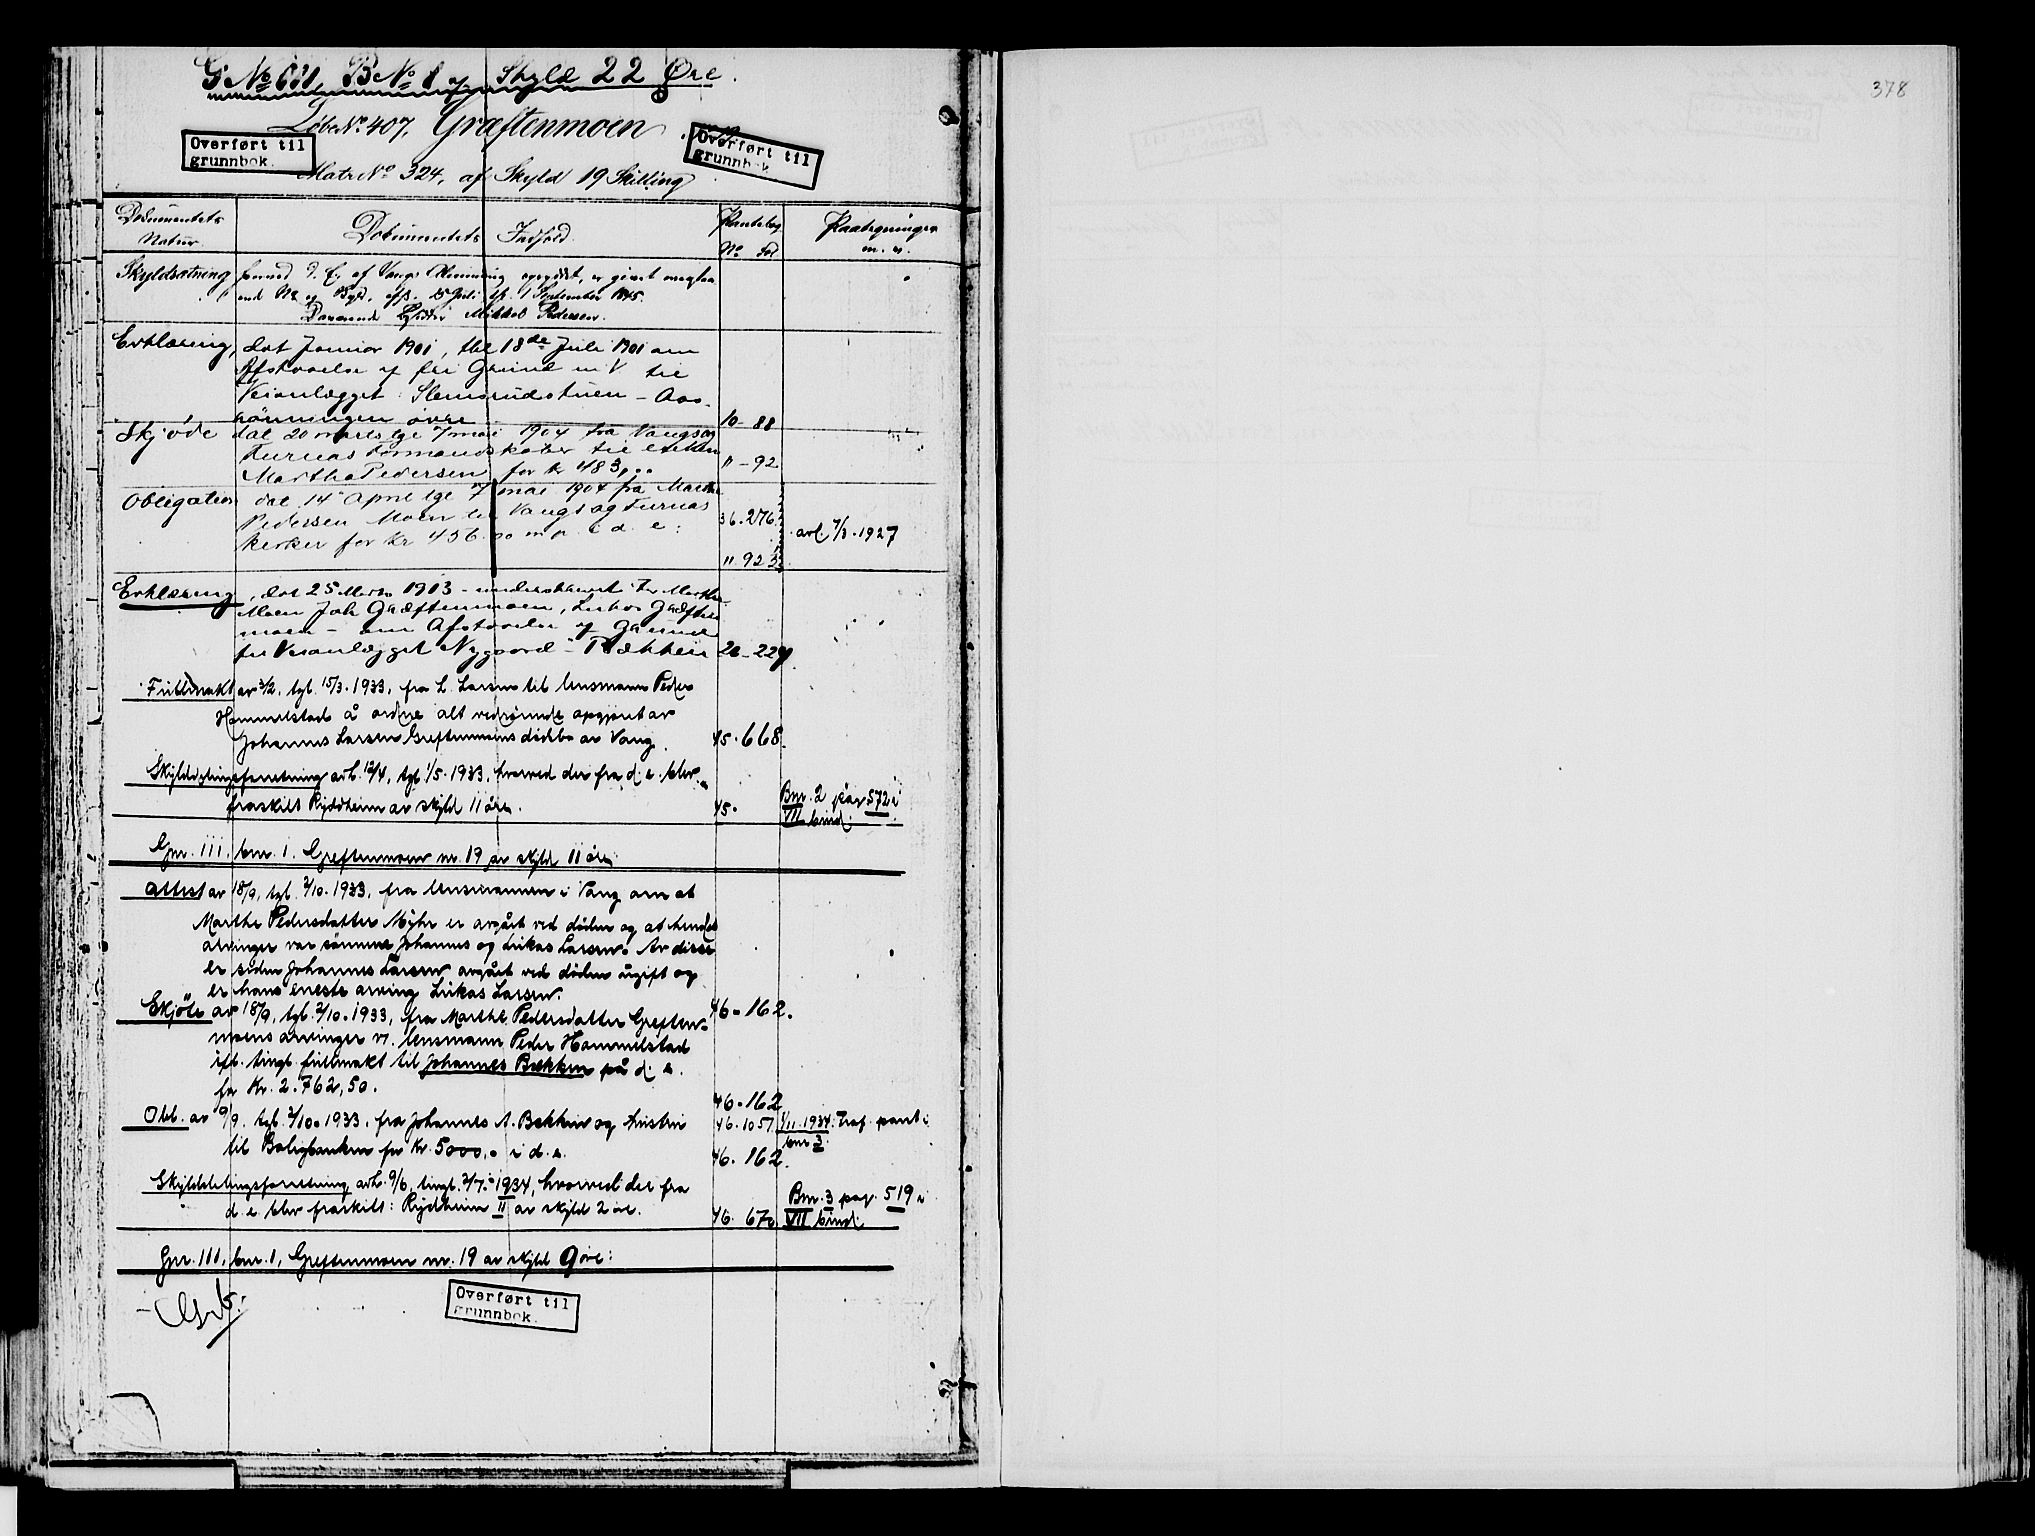 G No 111 B No 1 af Skyld 22 Øre.
LøbeNo. 407, Græftenmoen
Overført til
grunnbok.
Overført til
grunnbok.
Matr No 324, af Skyld 19 Skilling
Dokumentets
Natur
Dokumentets Indhold
Pantebog
No Fol
Paategninger
m. v.
Skyldsætning
Vangs Alminding
September 1845.
Mikkel Pedersen.
Erklæring, dat Januar 1901, tbl 18de Juli 1901 om
Afstaaelse af fri Grund m V til
Veianlægget Slemsrudstuen - Aas-
rönningen övre
10 - 88
Skjöde dat 20 marts lge 7 mai 1904 fra Vangs og
Furnæs Formandskaber til enken
Martha Pedersen for kr 483,00
11 - 92
Obligation dat 14 April lge 7 mai 1904 fra Marthe
Pedersen Moen til Vangs og Furnæs
kirker for kr 456.00 m p i d. e:
36. 276.
11 92
avl. 7/3. 1927
Erklæring, dat 25 Marts 1913 - underskrevet af Marthe
Moen Joh Græften­moen, Lukas Græften
moen - om Afstaaelse af Grund
for Veianlægget Nygaard - Bækken
Fullmakt av 3/2, tgl. 15/3. 1933, fra L. Larsen til lensmann Peder
Hammelstad å ordne alt vedrørende opgjøret av
Johannes Larsen Greftenmoens dødsbo av Vang.
45. 668.
Skylddelingsforretning avh. 12/4, tgl. 1/5. 1933, hvorved der fra d. e. blev
fraskilt Rydheim av skyld 11 øre.
45.
Bnr. 2 pag 572 i
VII bind.
Gnr. 111, bnr. 1. Greftenmoen nr. 19 av skyld 11 øre
Attest av 18/9, tgl. 2/10. 1933, fra lensmannen i Vang om at
Marthe Pedersdatter Myhr er avgått ved døden og at hendes
arvinger var sønnene Johannes og Lukas Larsen. Av disse
er siden Johannes Larsen avgått ved døden ugift og
er hans eneste arving Lukas Larsen.
46. 162.
Skjöte av 18/9, tgl. 2/10. 1933, fra Marthe Pedersdatter Greften-
moens arvinger v. lensmann Peder Hammelstad
ifl. tingl. fullmakt til Johannes Bækken på d. e.
for Kr. 2.762,50.
46. 162
Obl. av 9/9. tgl. 2/10. 1933. fra Johannes A. Bekken og hustru
til Boligbanken for Kr. 5000,- i d. e.
46. 1057
46. 162.
1/11. 1934: Fraf. pant i
bnr 3.
Skylddelingsforretning avh. 9/6, tingl. 2/7. 1934, hvorved der fra
d. e. blev fraskilt: Rydheim II av skyld 2 øre.
46. 670.
Bnr. 3 pag. 519 i
VII bind.
Gnr. 111, bnr. 1, Greftenmoen nr. 19 av skyld 9 øre:
Overført til
grunnbok.
378